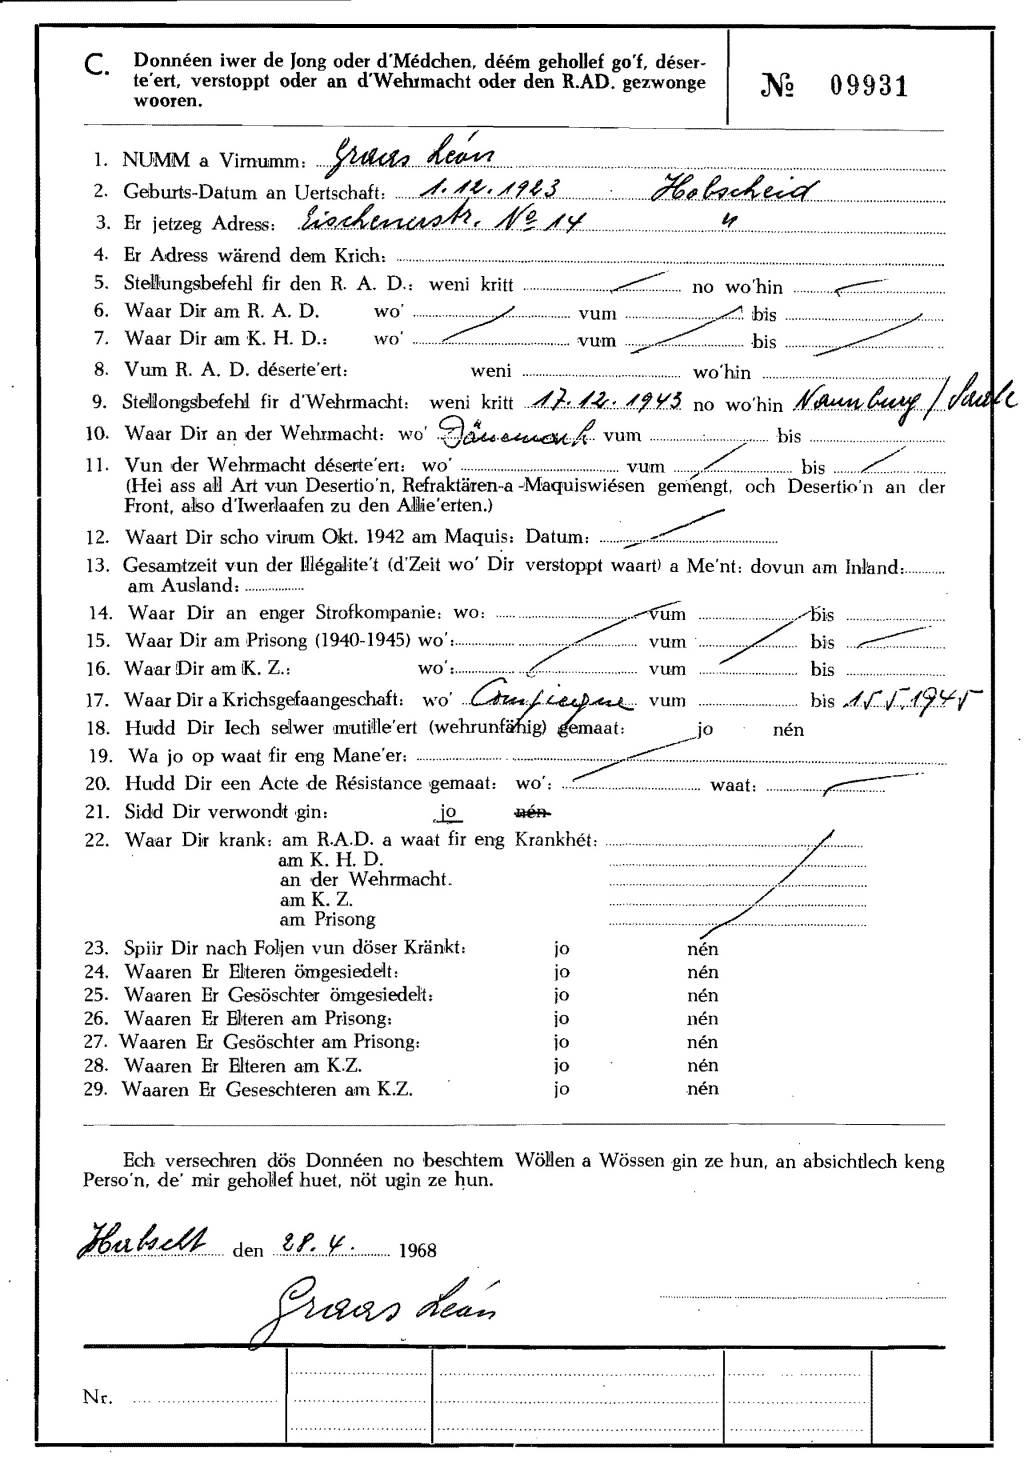 C. Donnéen iwer de Jong oder d'Médchen, déém gehollef go'f, déser-
te'ert, verstoppt oder an d'Wehrmacht oder den R.AD. gezwonge
wooren.
№ 09931
1. NUMM a Virnumm: Graas León
2. Geburts-Datum an Uertschaft: 1.12.1923 Hobscheid
3. Er jetzeg Adress: Eischenerstr. No 14 "
4. Er Adress wärend dem Krich:
5. Stellungsbefehl fir den R. A. D.: weni kritt no wo'hin
6. Waar Dir am R. A. D. wo' vum bis
7. Waar Dir am K. H. D.: wo' vum bis
8. Vum R. A. D. déserte'ert: weni wo'hin
9. Stellongsbefehl fir d'Wehrmacht: weni kritt 17.12.1943 no wo'hin Naumburg / Saale
10. Waar Dir an der Wehrmacht: wo' Dänemark vum bis
11. Vun der Wehrmacht déserte'ert: wo' vum bis
(Hei ass all Art vun Desertio'n, Refraktären-a-Maquiswiésen gemengt, och Desertio'n an der
Front, also d'Iwerlaafen zu den Allie'erten.)
12. Waart Dir scho virum Okt. 1942 am Maquis: Datum:
13. Gesamtzeit vun der Illégalite't (d'Zeit wo' Dir verstoppt waart) a Me'nt: dovun am Inland:
am Ausland:
14. Waar Dir an enger Strofkompanie: wo: vum bis
15. Waar Dir am Prisong (1940-1945) wo': vum bis
16. Waar Dir am K. Z.: wo': vum bis
17. Waar Dir a Krichsgefaangeschaft: wo' Compiegne vum bis 15.5.1945
18. Hudd Dir Iech selwer mutille'ert (wehrunfähig) gemaat: jo nén
19. Wa jo op waat fir eng Mane'er:
20. Hudd Dir een Acte de Résistance gemaat: wo': waat:
21. Sidd Dir verwondt gin: jo nén
22. Waar Dir krank: am R.A.D. a waat fir eng Krankhét:
am K. H. D.
an der Wehrmacht.
am K. Z.
am Prisong
23. Spiir Dir nach Foljen vun döser Kränkt: jo nén
24. Waaren Er Elteren ömgesiedelt: jo nén
25. Waaren Er Gesöschter ömgesiedelt: jo nén
26. Waaren Er Elteren am Prisong: jo nén
27. Waaren Er Gesöschter am Prisong: jo nén
28. Waaren Er Elteren am K.Z. jo nén
29. Waaren Er Geseschteren am K.Z. jo nén
Ech versechren dös Donnéen no beschtem Wöllen a Wössen gin ze hun, an absichtlech keng
Perso'n, de' mir gehollef huet, nöt ugin ze hun.
den 28.4. 1968
Graas Léon
Nr.